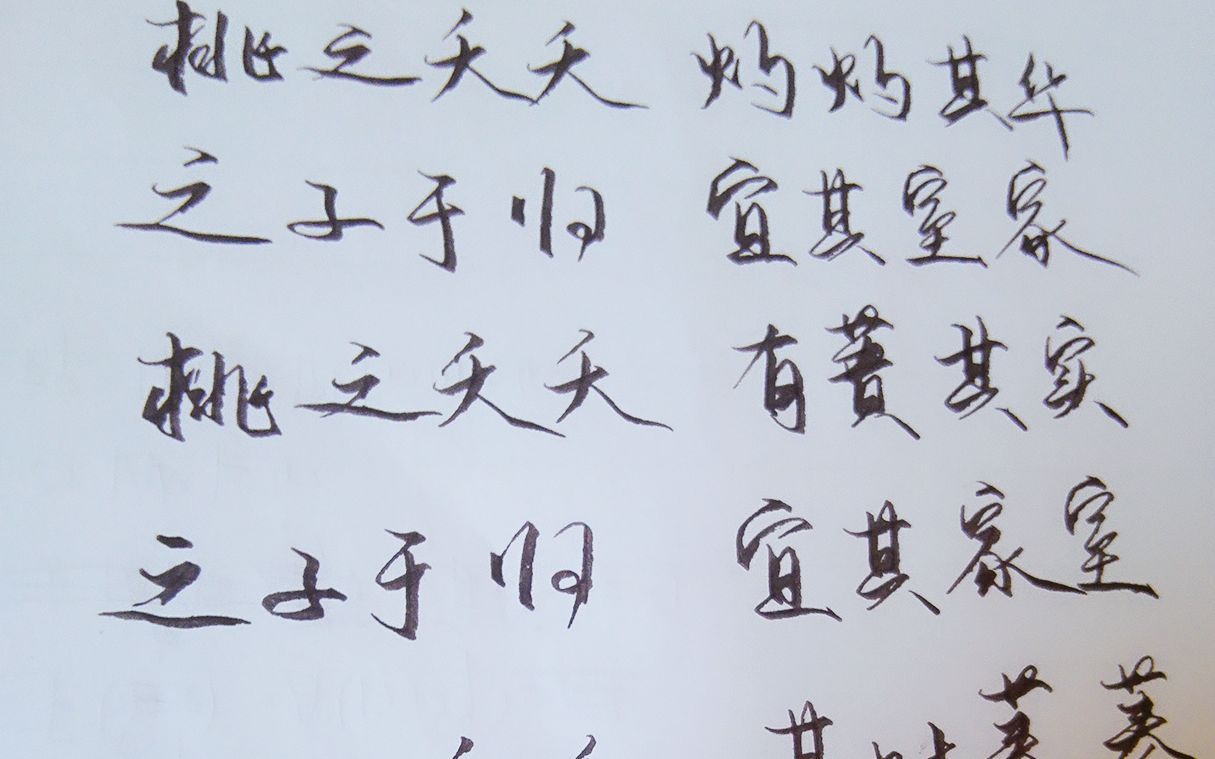 桃之夭夭 灼灼其华
之子于归 宜其室家
桃之夭夭 有蕡其实
之子于归 宜其家室
其叶蓁蓁